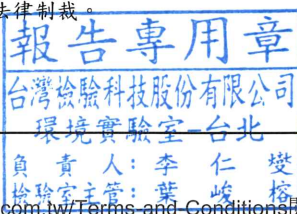 法律制裁。
報告專用章
台灣檢驗科技股份有限公司
環境實驗室-台北
負責人：李仁燮
檢驗室主管：葉峻榕
com.tw/Terms-and-Conditions